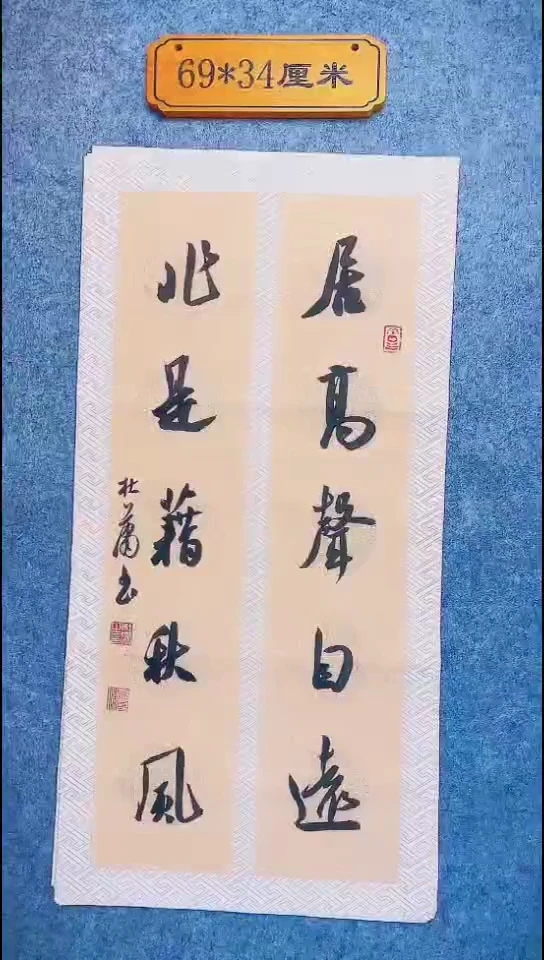 69*34厘米
居高聲自遠
非是藉秋風
杜萧玉